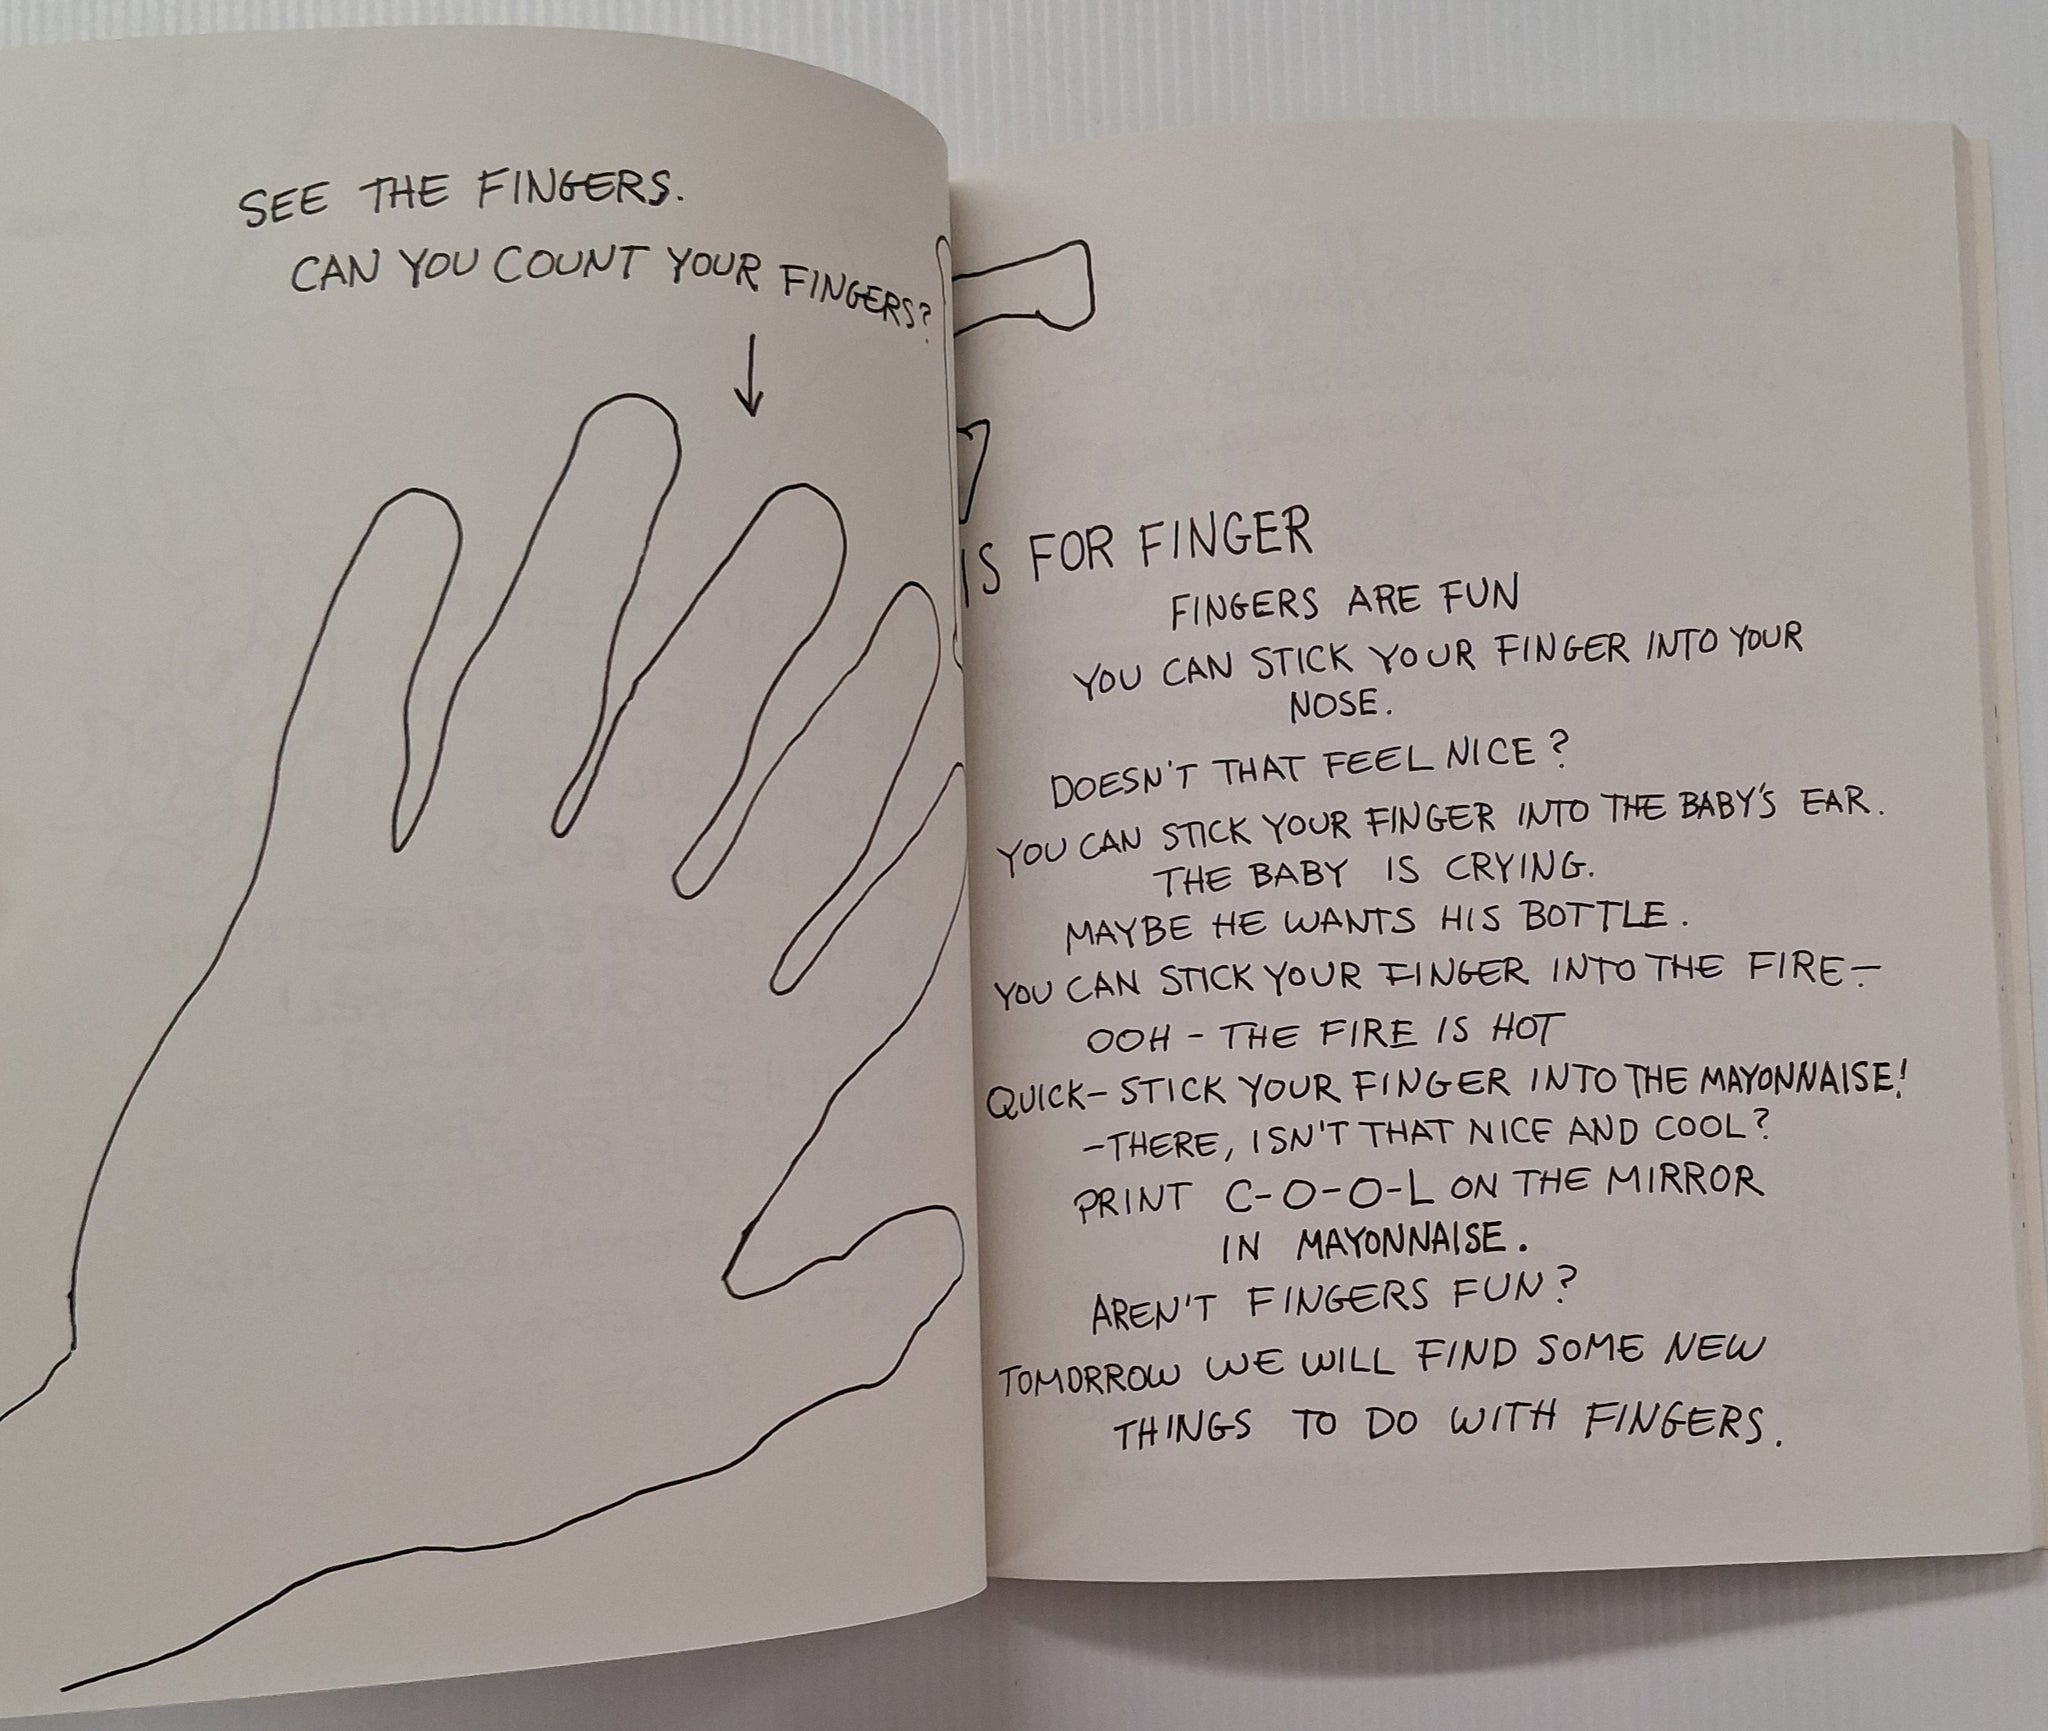 SEE THE FINGERS.
CAN YOU COUNT YOUR FINGERS?
IS FOR FINGER
FINGERS ARE FUN
YOU CAN STICK YOUR FINGER INTO YOUR
NOSE.
DOESN'T THAT FEEL NICE?
YOU CAN STICK YOUR FINGER INTO THE BABY'S EAR.
THE BABY IS CRYING.
MAYBE HE WANTS HIS BOTTLE.
YOU CAN STICK YOUR FINGER INTO THE FIRE—
OOH - THE FIRE IS HOT
QUICK- STICK YOUR FINGER INTO THE MAYONNAISE!
-THERE, ISN'T THAT NICE AND COOL?
PRINT C-O-O-L ON THE MIRROR
IN MAYONNAISE.
AREN'T FINGERS FUN?
TOMORROW WE WILL FIND SOME NEW
THINGS TO DO WITH FINGERS.